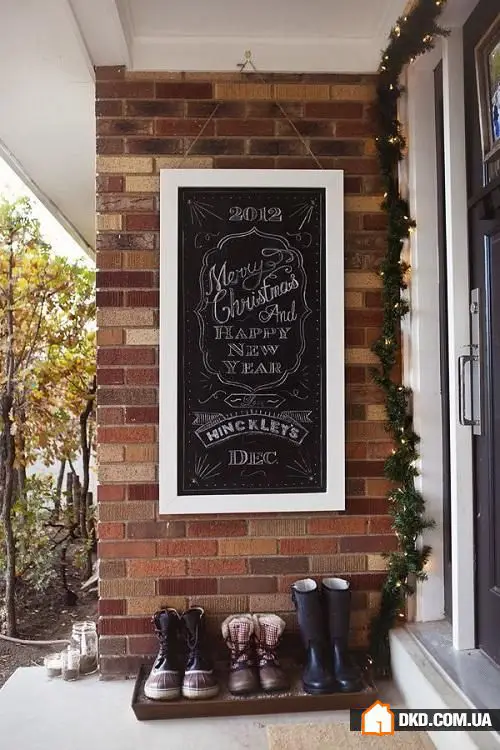 2012
Merry
Christmas
And
HAPPY
NEW
YEAR
HINCKLEY'S
DEC.
DKD.COM.UA